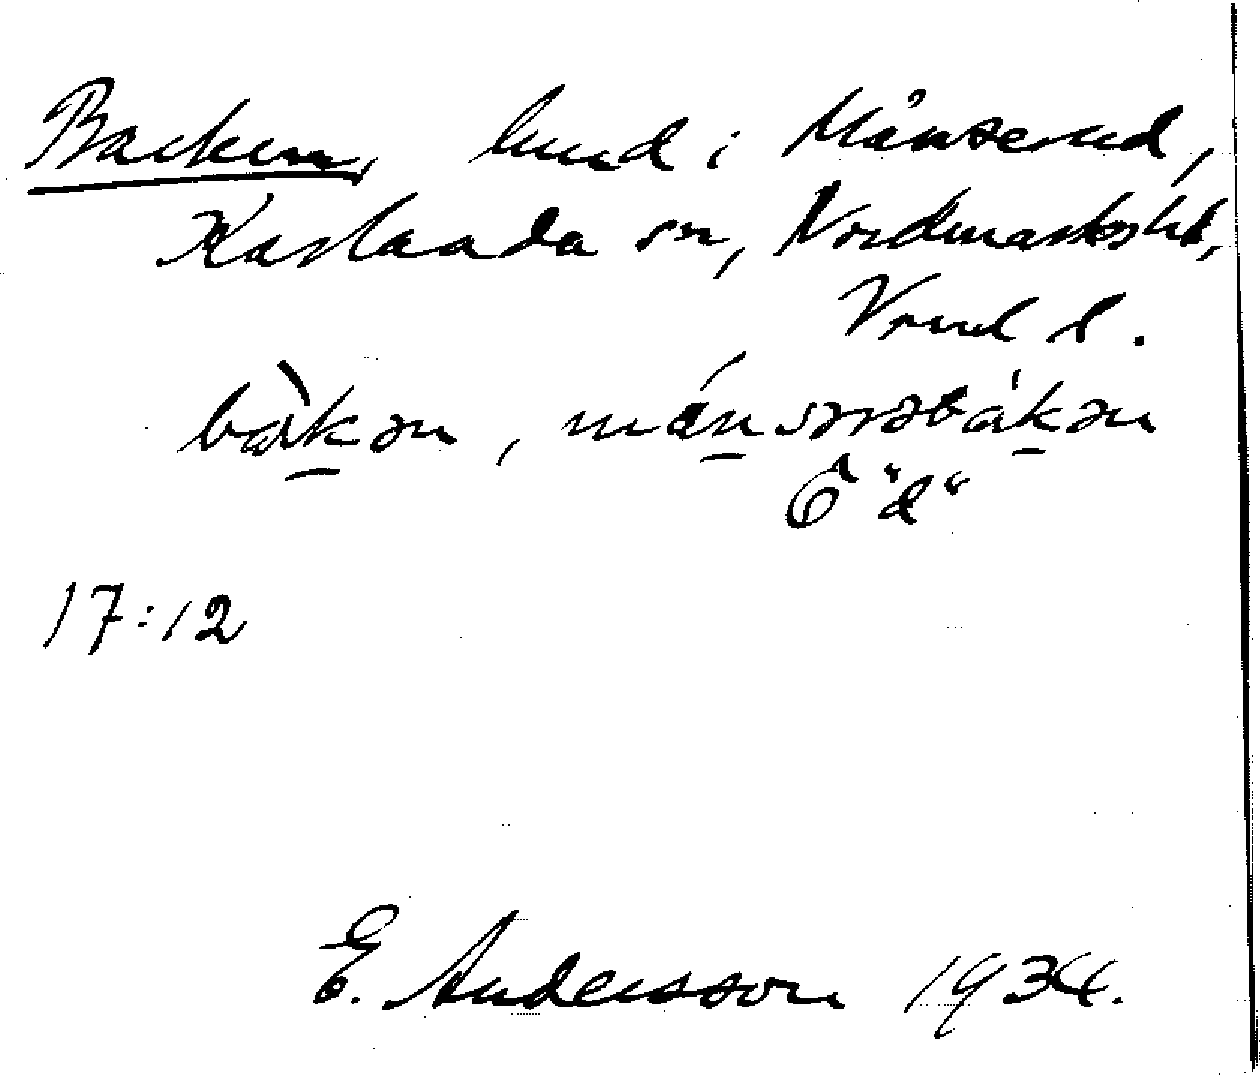 Backen, hmd i Månserud,
Karlanda sn, Nordmarks hd,
Vrml d.
bàkən, mánsərəbàkən
Ö "d"
17:12
E. Andersson 1934.